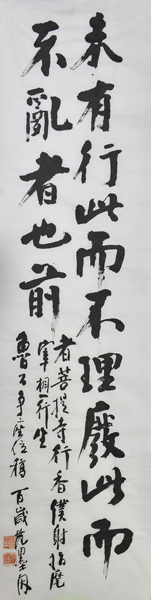 未有行此而不理廢此而
不亂者也前
者菩提寺行香僕射指麾
宰相一行坐
魯公爭座位稿 百歲